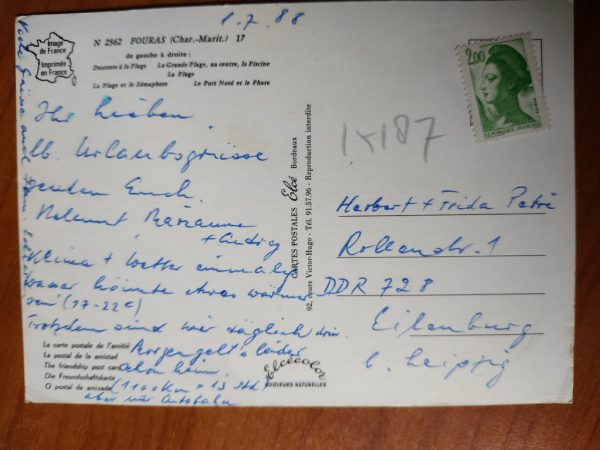 1.7.88
Image
de France
Imprimée
en France
N 2562 FOURAS (Char.-Marit.) 17
de gauche à droite :
Descente à la Plage La Grande Plage, au centre, la Piscine
La Plage
La Plage et le Sémaphore Le Port Nord et le Phare
2.00
REPUBLIQUE FRANÇAISE
Ihr Lieben,
lb. Urlaubsgrüsse
senden Euch
Helmut Marianne
+ Andrea
Klima + Wetter einmalig
Wasser könnte etwas wärmer
sein (17-22°)
Trotzdem sind wir täglich drin.
Morgen geht's leider
schon heim.
(1100km + 13 Std
aber nur Autobahn
Viele Grüsse auch
La carte postale de l'amitié
La postal de la amistad
The friendship post card
Die Freundschaftskarte
O postal da amizade
CARTES POSTALES Elcé Bordeaux
92, cours Victor-Hugo - Tél. 91.57.96 - Reproduction interdite
elcécolor
COULEURS NATURELLES
Herbert + Frida Petrè
Rollenstr. 1
DDR 728
Eilenburg
b. Leipzig